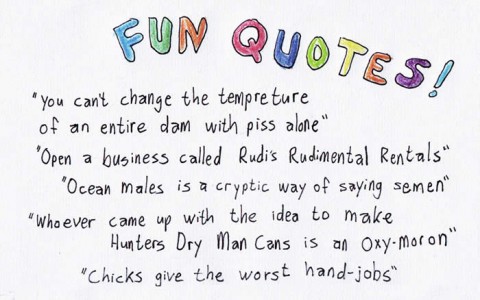 FUN QUOTES!
"You can't change the tempreture
of an entire dam with piss alone"
"Open a business called Rudi's Rudimental Rentals"
"Ocean males is a cryptic way of saying semen"
"Whoever came up with the idea to make
Hunters Dry Man Cans is an Oxy-moron"
"Chicks give the worst hand-jobs"